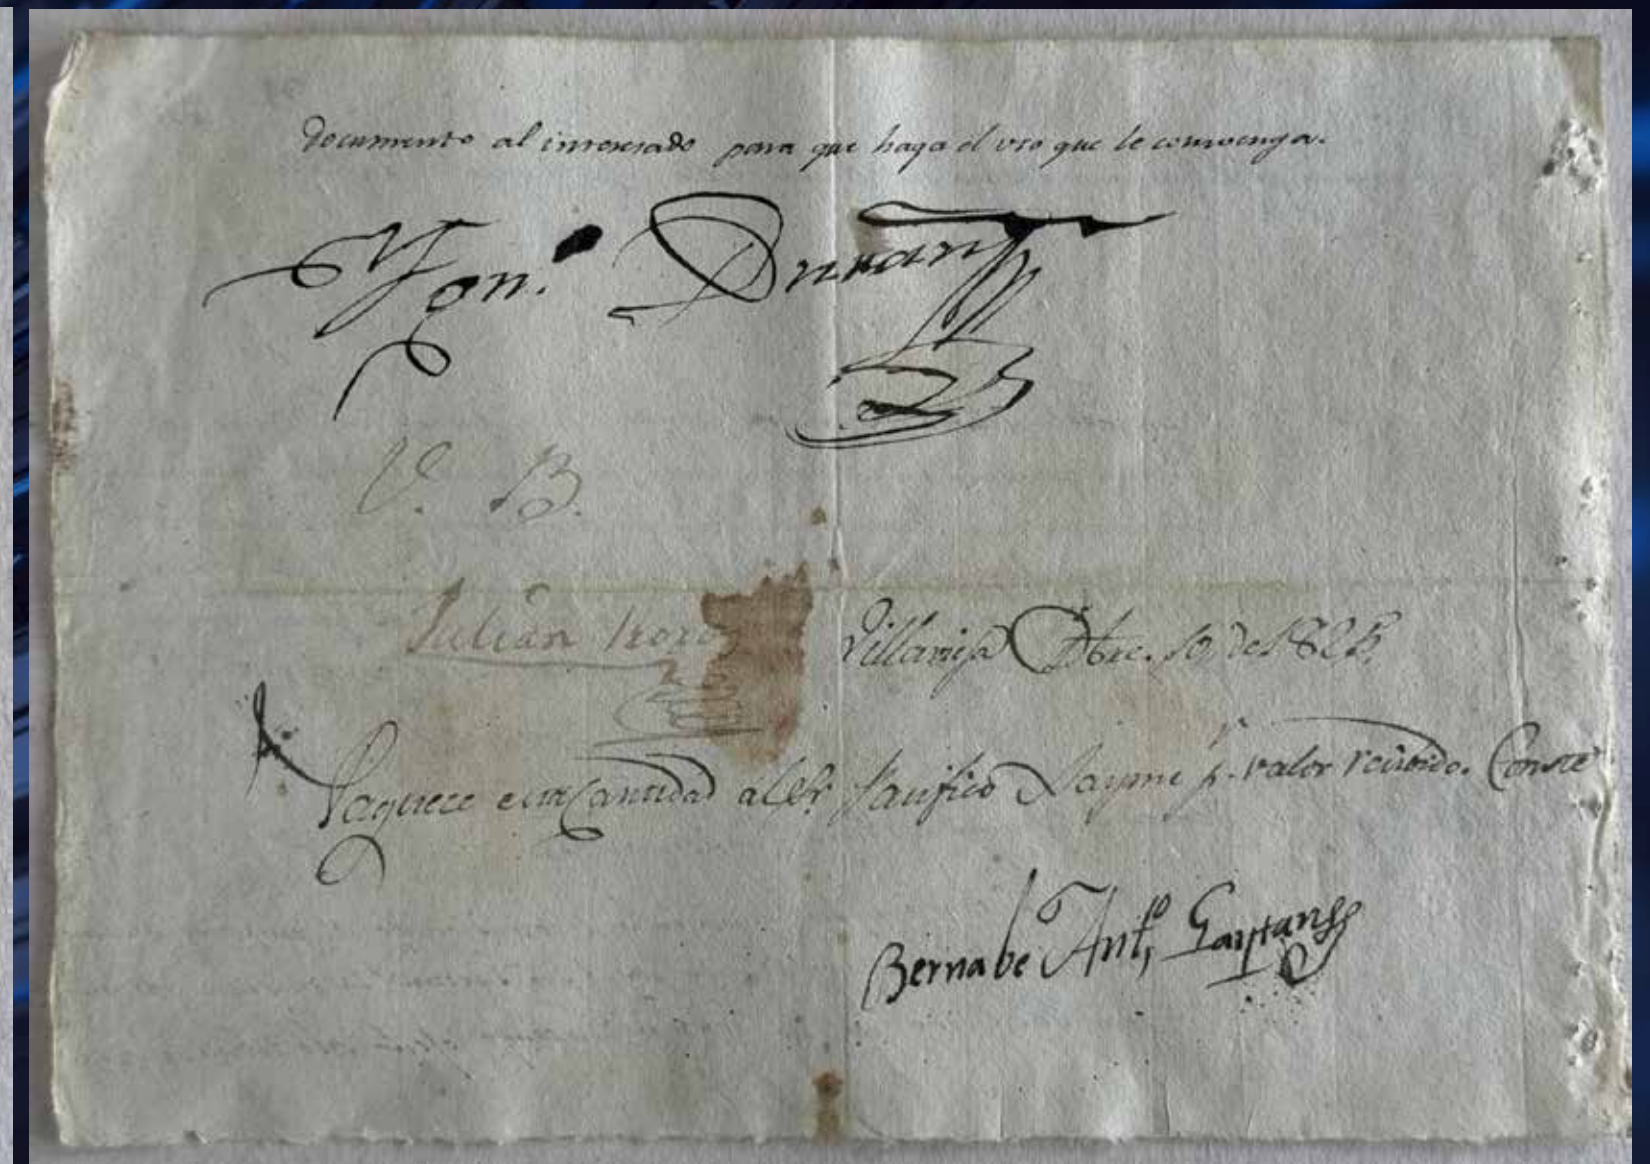 Documento al interesado para que haga el uso que le convenga.
Ygn.º Duran
V. B.
Julian
Dbre. 10, de 1825
Paguece esta Cantidad al Sr Jayme pr. valor recivido. Conste
Bernabe Antº, Gaytan